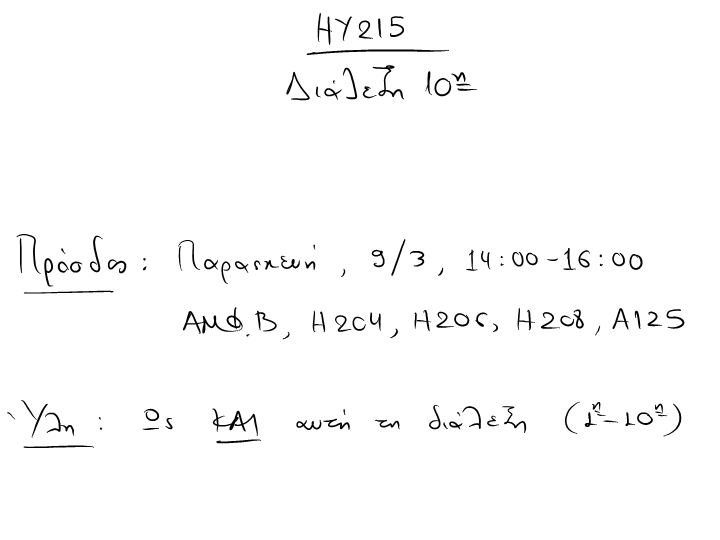 ΗΥ215
Διάλεξη 10η
Πρόοδος: Παρασκευή, 9/3, 14:00-16:00
ΑΜΦ.Β, Η204, Η206, Η208, Α125
Ύλη: Ως ΚΑΙ αυτή τη διάλεξη (1η-10η)